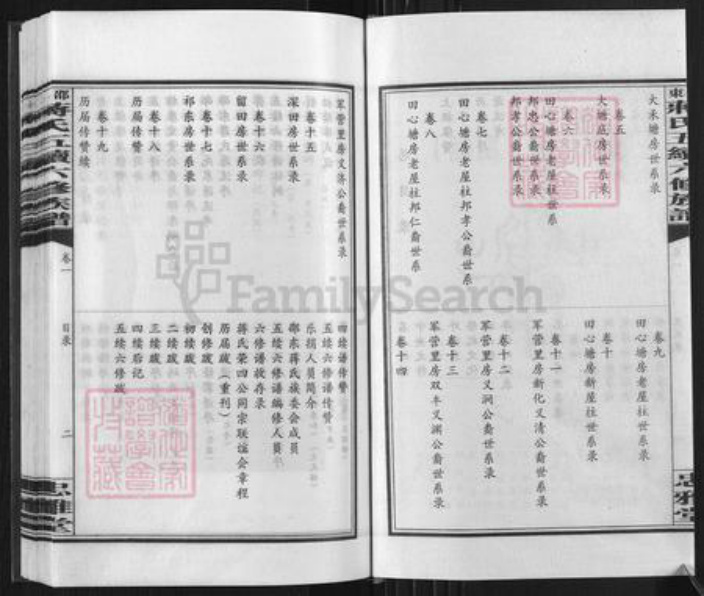 东蒋氏五续六修族谱
大禾塘房世系录
卷五
大塘底房世系录
卷六
田心塘房老屋柱世系
邦忠公裔世系录
邦孝公裔世系录
卷七
田心塘房老屋柱邦孝公裔世系录
卷八
田心塘房老屋柱邦仁裔世系录
卷九
田心塘房老屋柱世系录
卷十
田心塘房新屋柱世系录
卷十一
军营里房新化义清公裔世系录
卷十二
军营里房义涧公裔世系录
卷十三
军营里房双丰义渊公裔世系录
卷十四
忠雅堂
军营里房义济公裔世系录
卷十五
深田房世系录
卷十六
留田房世系录
卷十七
祁东房世系录
卷十八
历届传赞
卷十九
历届传赞续
四续谱传赞
五续六修谱传赞
乐捐人员简介
邵东蒋氏族委会成员
五续六修谱编修人员
六修谱校存录
蒋氏荣四公同宗联谊会章程
历届跋（重刊）
创修跋
初续跋
二续跋
三续跋
四续后记
五续六修跋
邵蒋氏五续六修族谱
卷一
目录
二
忠雅堂
FamilySearch